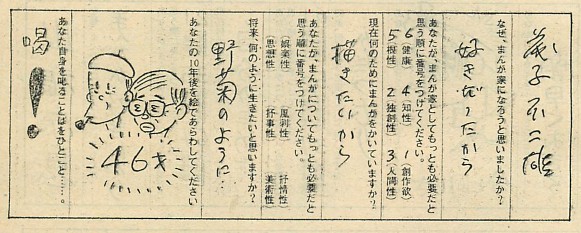 藤子不二雄
なぜ、まんが家になろうと思いましたか?
好きだったから
あなたが、まんが家としてもっとも必要だと
思う順に番号をつけてください。
6(健康 4知性 1創作欲
5根性 2独創性 3人間性)
現在何のためにまんがをかいていますか?
描きたいから
あなたが、まんがについてもっとも必要だと
思う順に番号をつけてください。
(娯楽性 風刺性 抒情性
(思想性 抒事性 美術性)
将来、何のように生きたいと思いますか?
野菊のように…
あなたの10年後を絵であらわしてください
46才
あなた自身を叱ることばをひとこと……。
喝!